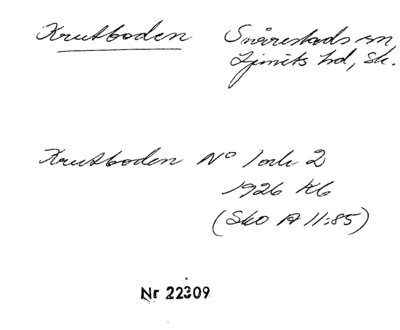 Krutboden Snårestads sn
Ljunits hd, Sk.
Krutboden No 1 och 2
1926 K6
(Sko A 11:85)
Nr 22309